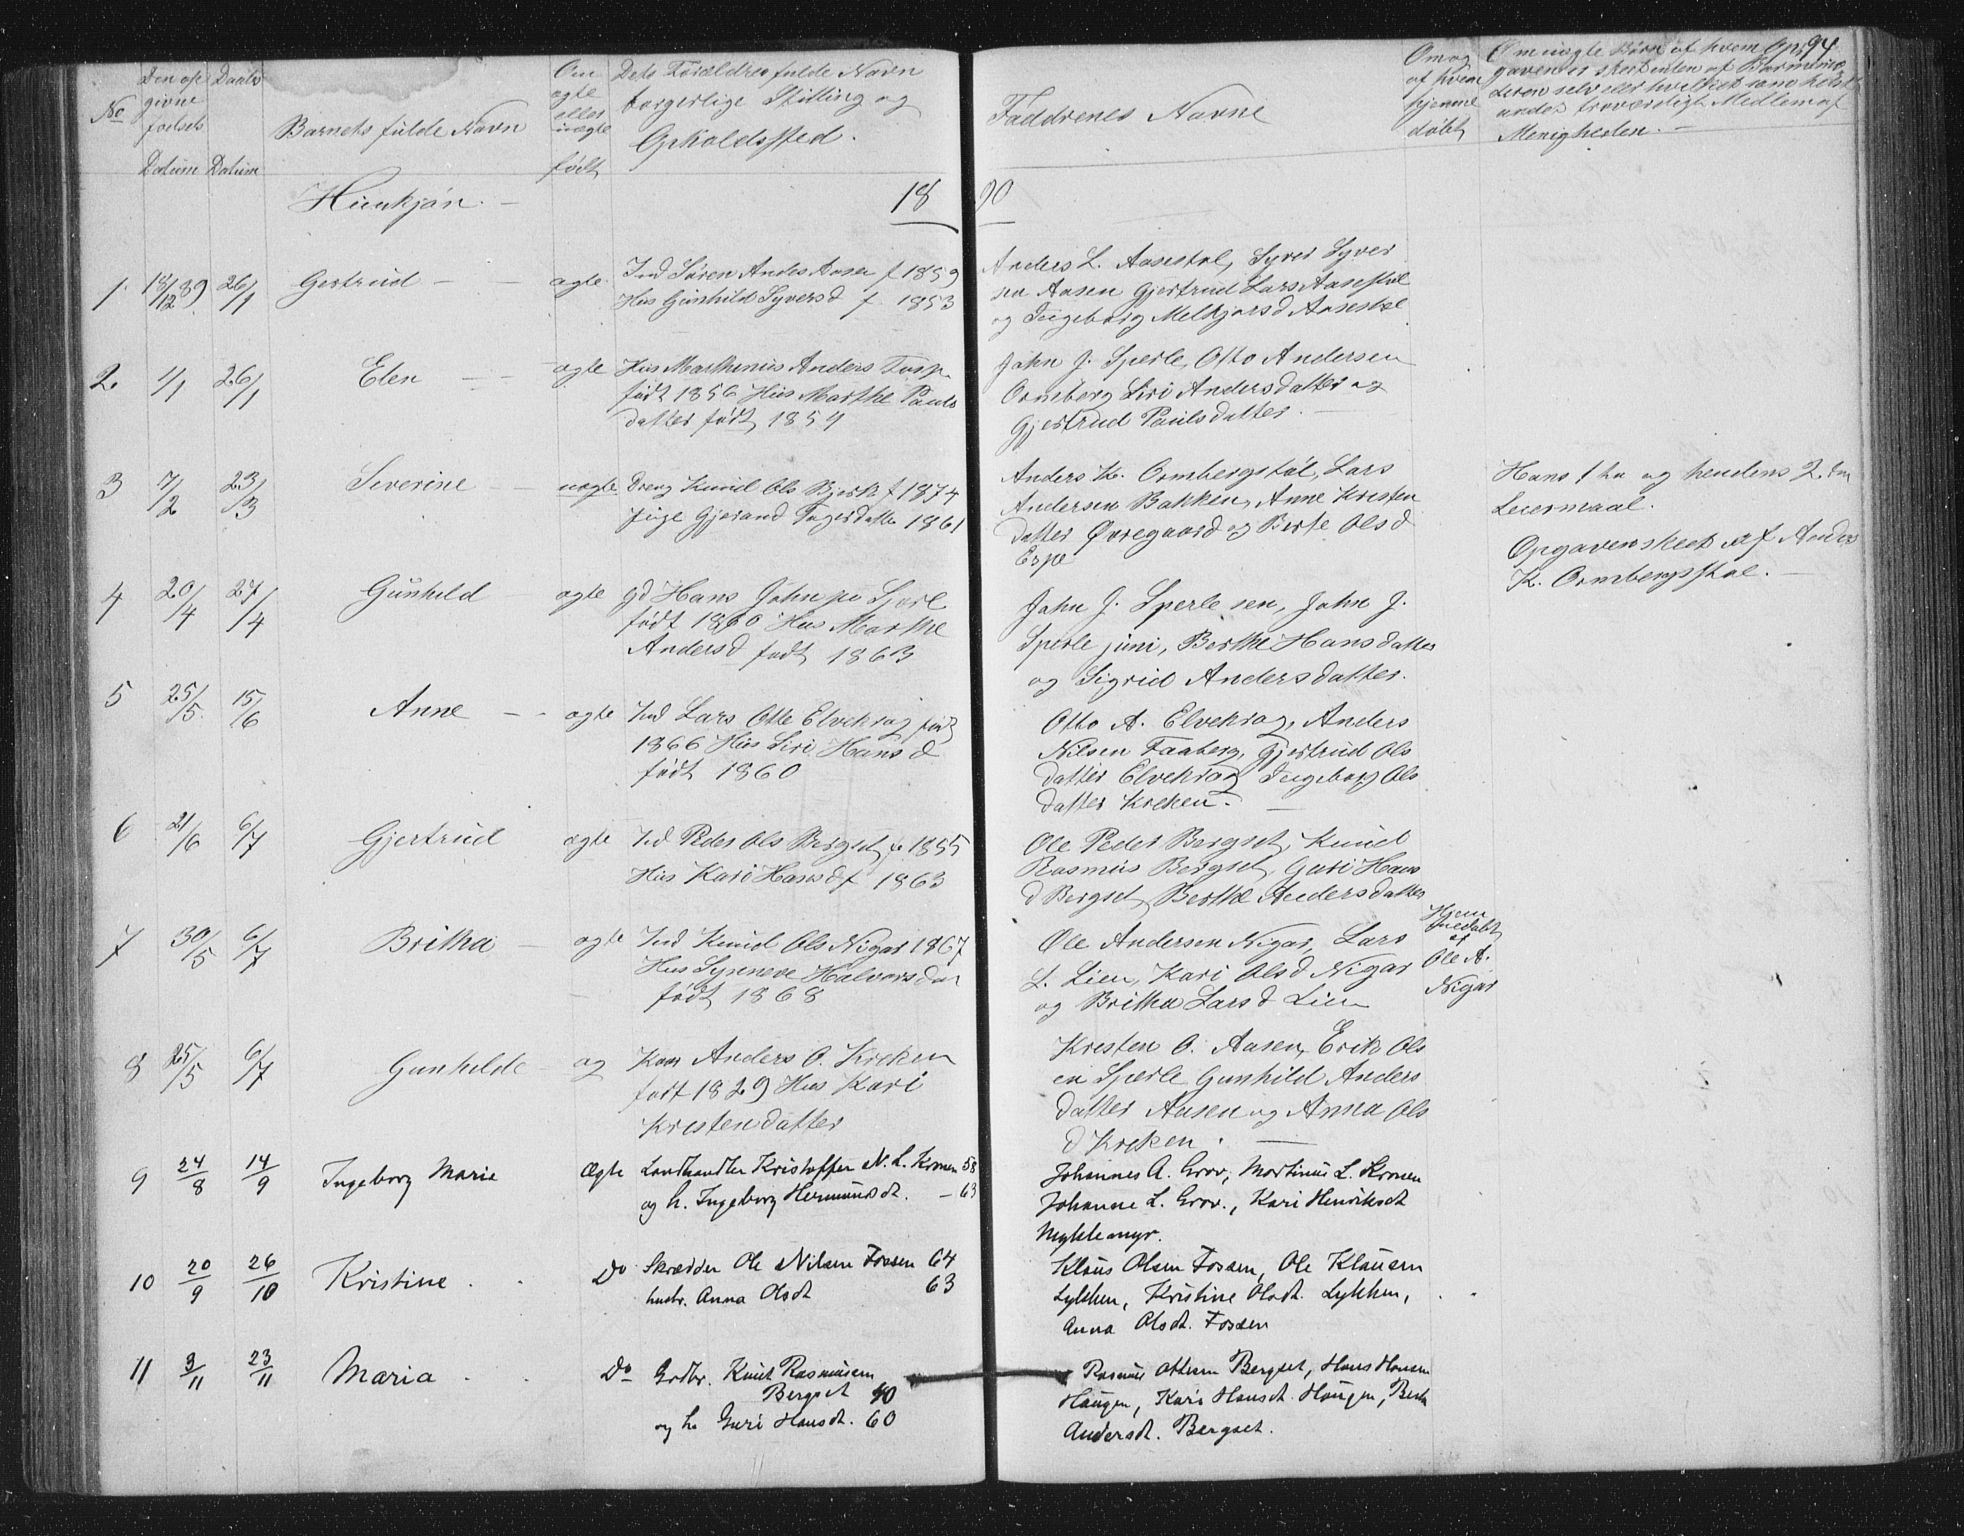 94
No
Den op Daabs
givne
fødsels
Datum Datum
Barnets fulde Navn
Om
ægte
eller
uægte
født
Dets Forældres fulde Navn
borgerlige Stilling og
Opholdssted.
Faddrenes Navne
Om og
af hvem
hjemme
døbt
Om uægte Børn af hvem Op
gaven er skeet enten af Barnemo
deren selv eller hvilket som helst
andet troværdigt Medlem af
Menigheden. —
Kvinkjøn. —
18 90
1. 18/12 89 26/1 Gertrud — — ægte Ind Søren Anders Aasen f 1859
Hus Gunhild Syversd f. 1853
Anders L. Aasestøl, Syver Syver
sen Aasen Gjertrud Lars Aasestøl
og Ingeborg Melkjorsd Aasestøl
2. 1/1 26/1 Elen — — ægte Hus Marthinus Anders
født 1856 Hus Marthe Pauls
datter født 1854
John J. Sperle, Otto Andersen
Ormberg Siri Andersdatter og
Gjertrud Paulsdatter. —
3 7/2 23/3 Severine — uægte Dreng Knud Ols Bjerk f 1874
Pige Gjerand 1861
Anders K. Ormbergstøl, Lars
Andersen Bakken, Anne Kristen
datter Øvregaard og Berte Olsd
Espe
Hans 1ste og hendens 2den
Leiermaal.
Opgaven skeet af Anders
K. Ormbergstøl. —
4 20/4 27/4 Gunhild ægte gd Hans John
født 1860 Hus Marthe
Andersd født 1863
John J. Sperle sen, John J.
Sperle juni, Berthe Hansdatter
og Sigrid Andersdatter.
5 25/5. 15/6 Anne — - ægte Ind Lars Otte Elvekrag født
1866 Hus Siri Hansd
født 1860
Otto A. Elvekrag, Anders
Nilsen Faaberg, Gjertrud Ols
datter Elvekrag Ingeborg Ols
datter Kreken. —
6 21/6 6/7 Gjertrud ægte Ind Peder Ols Bergset, f 1855
Hus Kari Hansd f 1863
Ole Peder Bergset, Knud
Rasmus Bergset, Guri Hans
d Bergset, Berthe Andersdatter
7 30/5 6/7 Britha — ægte Ind Knud Ols Nigar 1867
Hus Synneve Halvorsdat
født 1868
Ole Andersen Nigar, Lars
L. Lien, Kari Olsd Nigar
og Britha Larsd Lien
Hjem
medøbt
af
Ole A.
Nigar
8 25/5 6/7 Gunhilde — æg Kaar Anders O. Kreken
født 1829 Hus Kari
Kristensdatter
Kresten O. Aasen, Erik Ols
en Sperle Gunhild Anders
datter Aasen og Anna Ols
d Kreken. —
9 24/8 14/9 Ingeborg Marie Ægte Landhandler Kristoffer N. L. Kronen 58
og h. Ingeborg Hermundsdt. — 63
Johannes A. Grov, Martinus L. Kronen
Johanne L. Grov., Kari Henriksdt
Myklemyr.
10 20/9 26/10 Kristine . . Do Skrædder Ole Nilsen Fossen 64
hustr. Anna Olsdt 63
Klaus Olsen Fossen, Ole Klausen
Lykken, Kristine Olsdt. Lykken,
Anna Olsdt. Fossen
11 3/11 23/11 Maria . . Do Grdbr. Knut Rasmussen
Bergset 40
og h. Guri Hansdt. 60
Rasmus Ottesen Bergset, Hans Hansen
Haugen, Kari Hansdt. Haugen, Berte
Andersdt. Bergset.